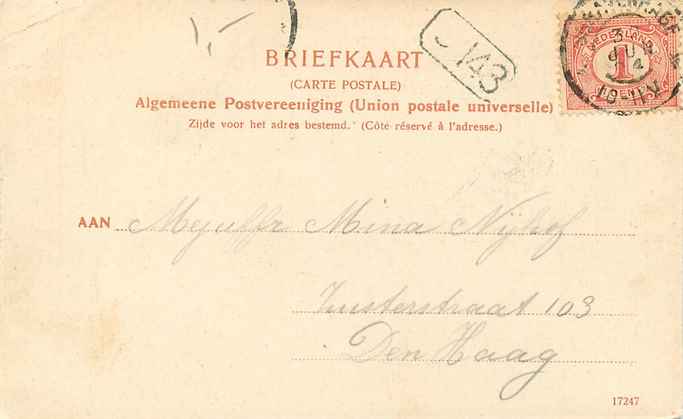 1,-
J143
BRIEFKAART
(CARTE POSTALE)
Algemeene Postvereeniging (Union postale universelle)
Zijde voor het adres bestemd. (Côté réservé à l'adresse.)
NEDERLAND
1
CENT
AAN Mejuffr Mina Nijhof
Zusterstraat 103
Den Haag
17247